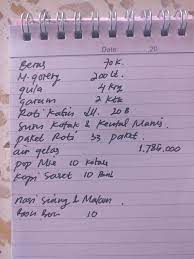 Date 20
Beras 70 K.
M. goreng 200 Lt.
gula 4 Krg
garam 2 Ktk
Roti Kabin 20 B
Susu Kotak & Kental Manis
paket Roti 33 paket.
air gelas 1.786.000
pop Mie 10 Kotak
Kopi Saset 10
nasi Siang & Malam
10